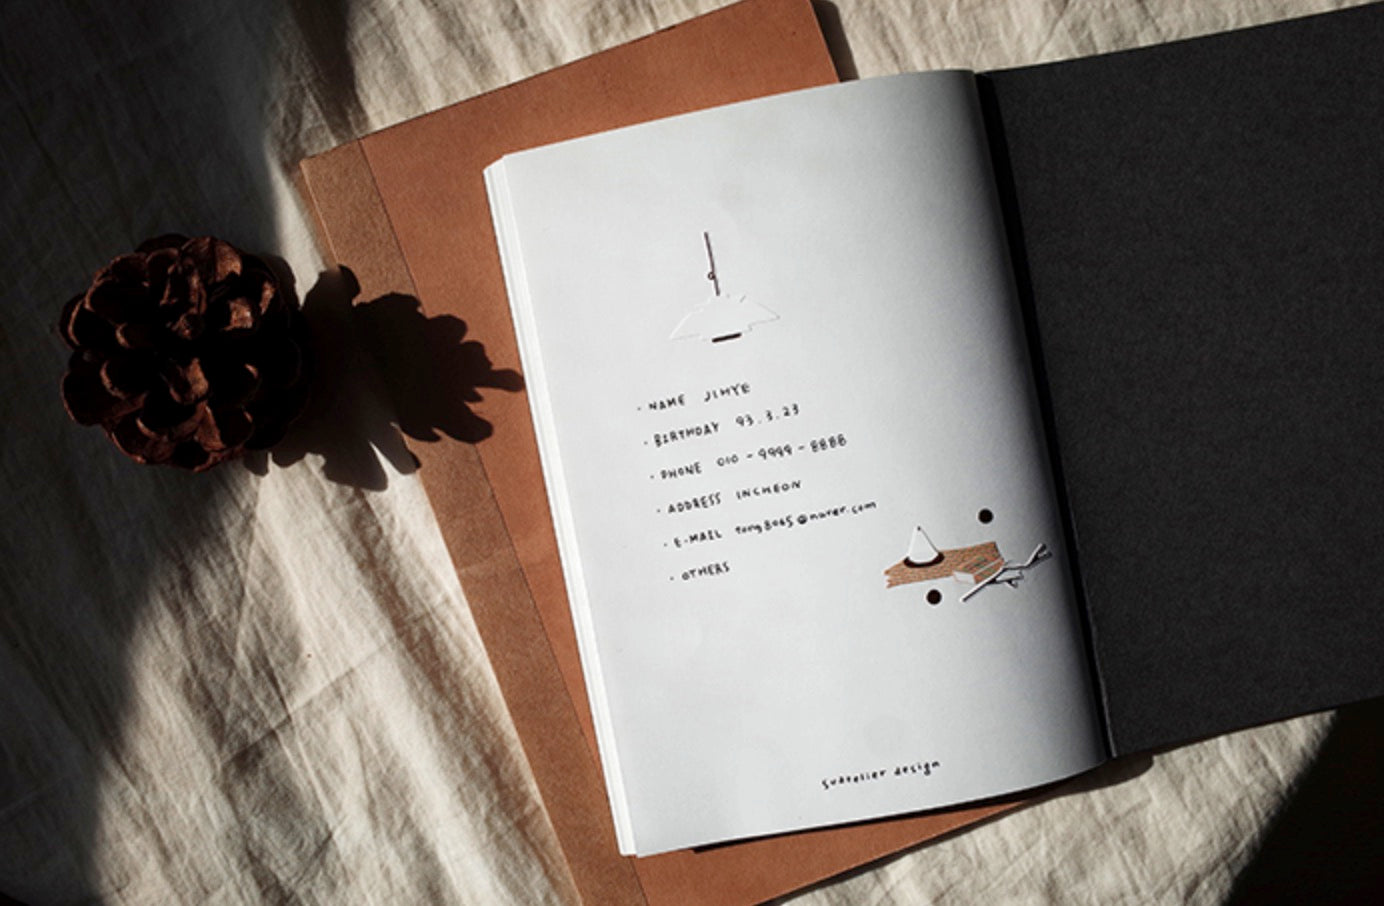 · NAME JIHYE
· BIRTHDAY 93.3.23
· PHONE 010-9999-8888
· ADDRESS INCHEON
· E-MAIL tong8065@naver.com
· OTHERS
suatelier design